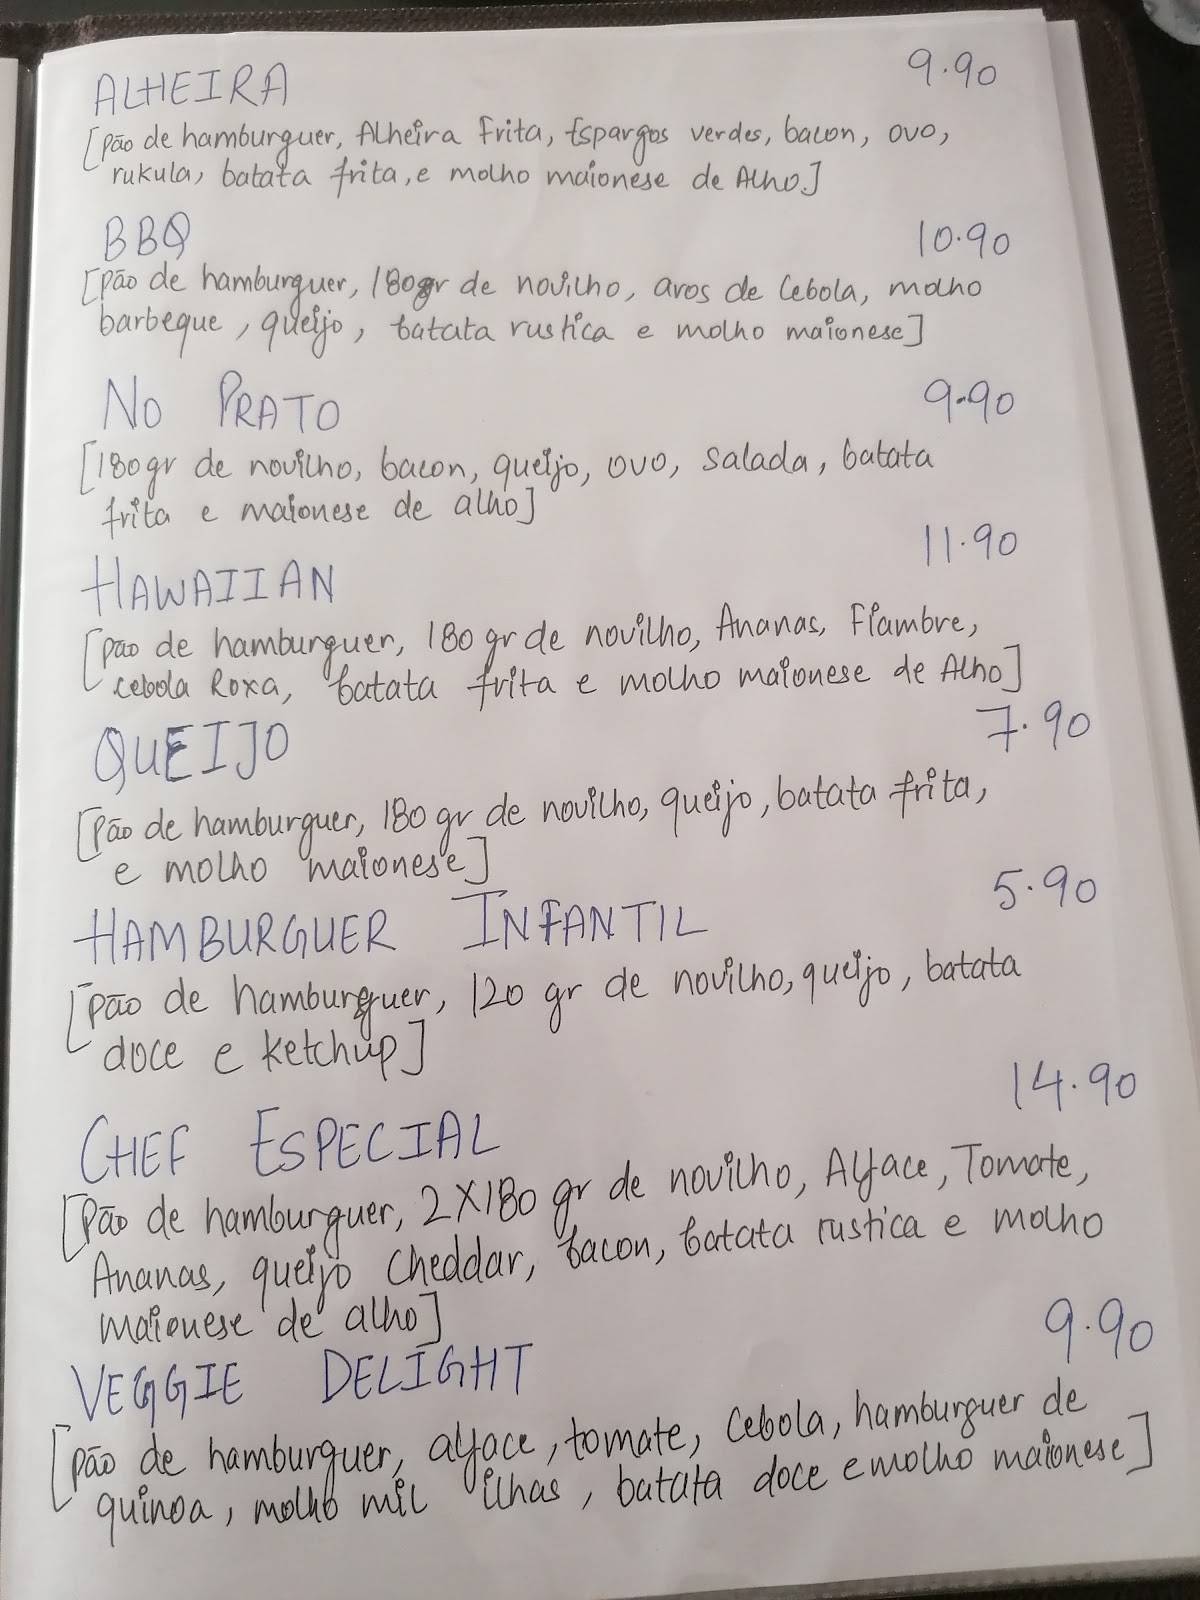 ALHEIRA 9.90
[pão de hamburguer, Alheira Frita, Espargos verdes, bacon, ovo,
rukula, batata frita, e molho maionese de Alho.]
BBQ 10.90
[pão de hamburguer, 180gr de novilho, aros de Cebola, molho
barbeque, queijo, batata rustica e molho maionese]
NO PRATO 9.90
[180gr de novilho, bacon, queijo, ovo, salada, batata
frita e maionese de alho]
HAWAIIAN 11.90
[pão de hamburguer, 180 gr de novilho, Ananas, Fiambre,
cebola Roxa, batata frita e molho maionese de Alho]
QUEIJO 7.90
[pão de hamburguer, 180 gr de novilho, queijo, batata frita,
e molho maionese]
HAMBURGUER INFANTIL 5.90
[pão de hamburguer, 120 gr de novilho, queijo, batata
doce e ketchup]
CHEF ESPECIAL 14.90
[Pão de hamburguer, 2X180 gr de novilho, Alface, Tomate,
Ananas, queijo cheddar, bacon, batata rustica e molho
maionese de alho]
VEGGIE DELIGHT 9.90
[pão de hamburguer, alface, tomate, Cebola, hamburguer de
quinoa, molho mil ilhas, batata doce e molho maionese]